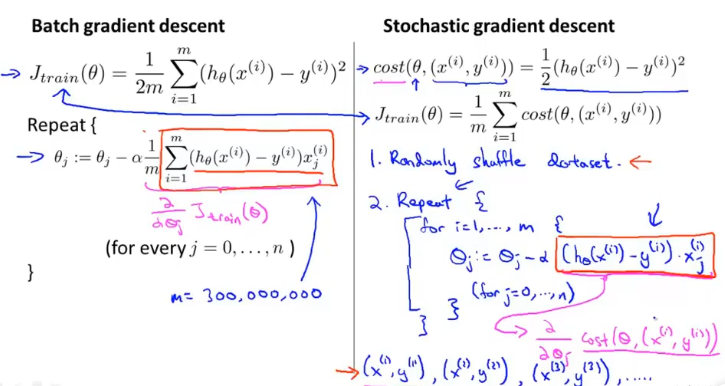 Batch gradient descent
→ J_train(θ) = 1/2m ∑_{i=1}^{m} (h_θ(x^(i)) − y^(i))²
Repeat {
→ θ_j := θ_j − α 1/m ∑_{i=1}^{m} (h_θ(x^(i)) − y^(i)) x_j^(i)
∂/∂θ_j J_train(θ)
(for every j = 0, . . . , n )
}
m = 300,000,000
Stochastic gradient descent
→ cost(θ, (x^(i), y^(i))) = 1/2 (h_θ(x^(i)) − y^(i))²
J_train(θ) = 1/m ∑_{i=1}^{m} cost(θ, (x^(i), y^(i)))
1. Randomly shuffle dataset. ←
2. Repeat {
for i=1,..., m {
θ_j := θ_j − α (h_θ(x^(i)) − y^(i)) · x_j^(i)
(for j=0,...,n)
}
}
→ ∂/∂θ_j cost(θ, (x^(i), y^(i)))
→ (x^(1), y^(1)), (x^(2), y^(2)), (x^(3), y^(3)), .....